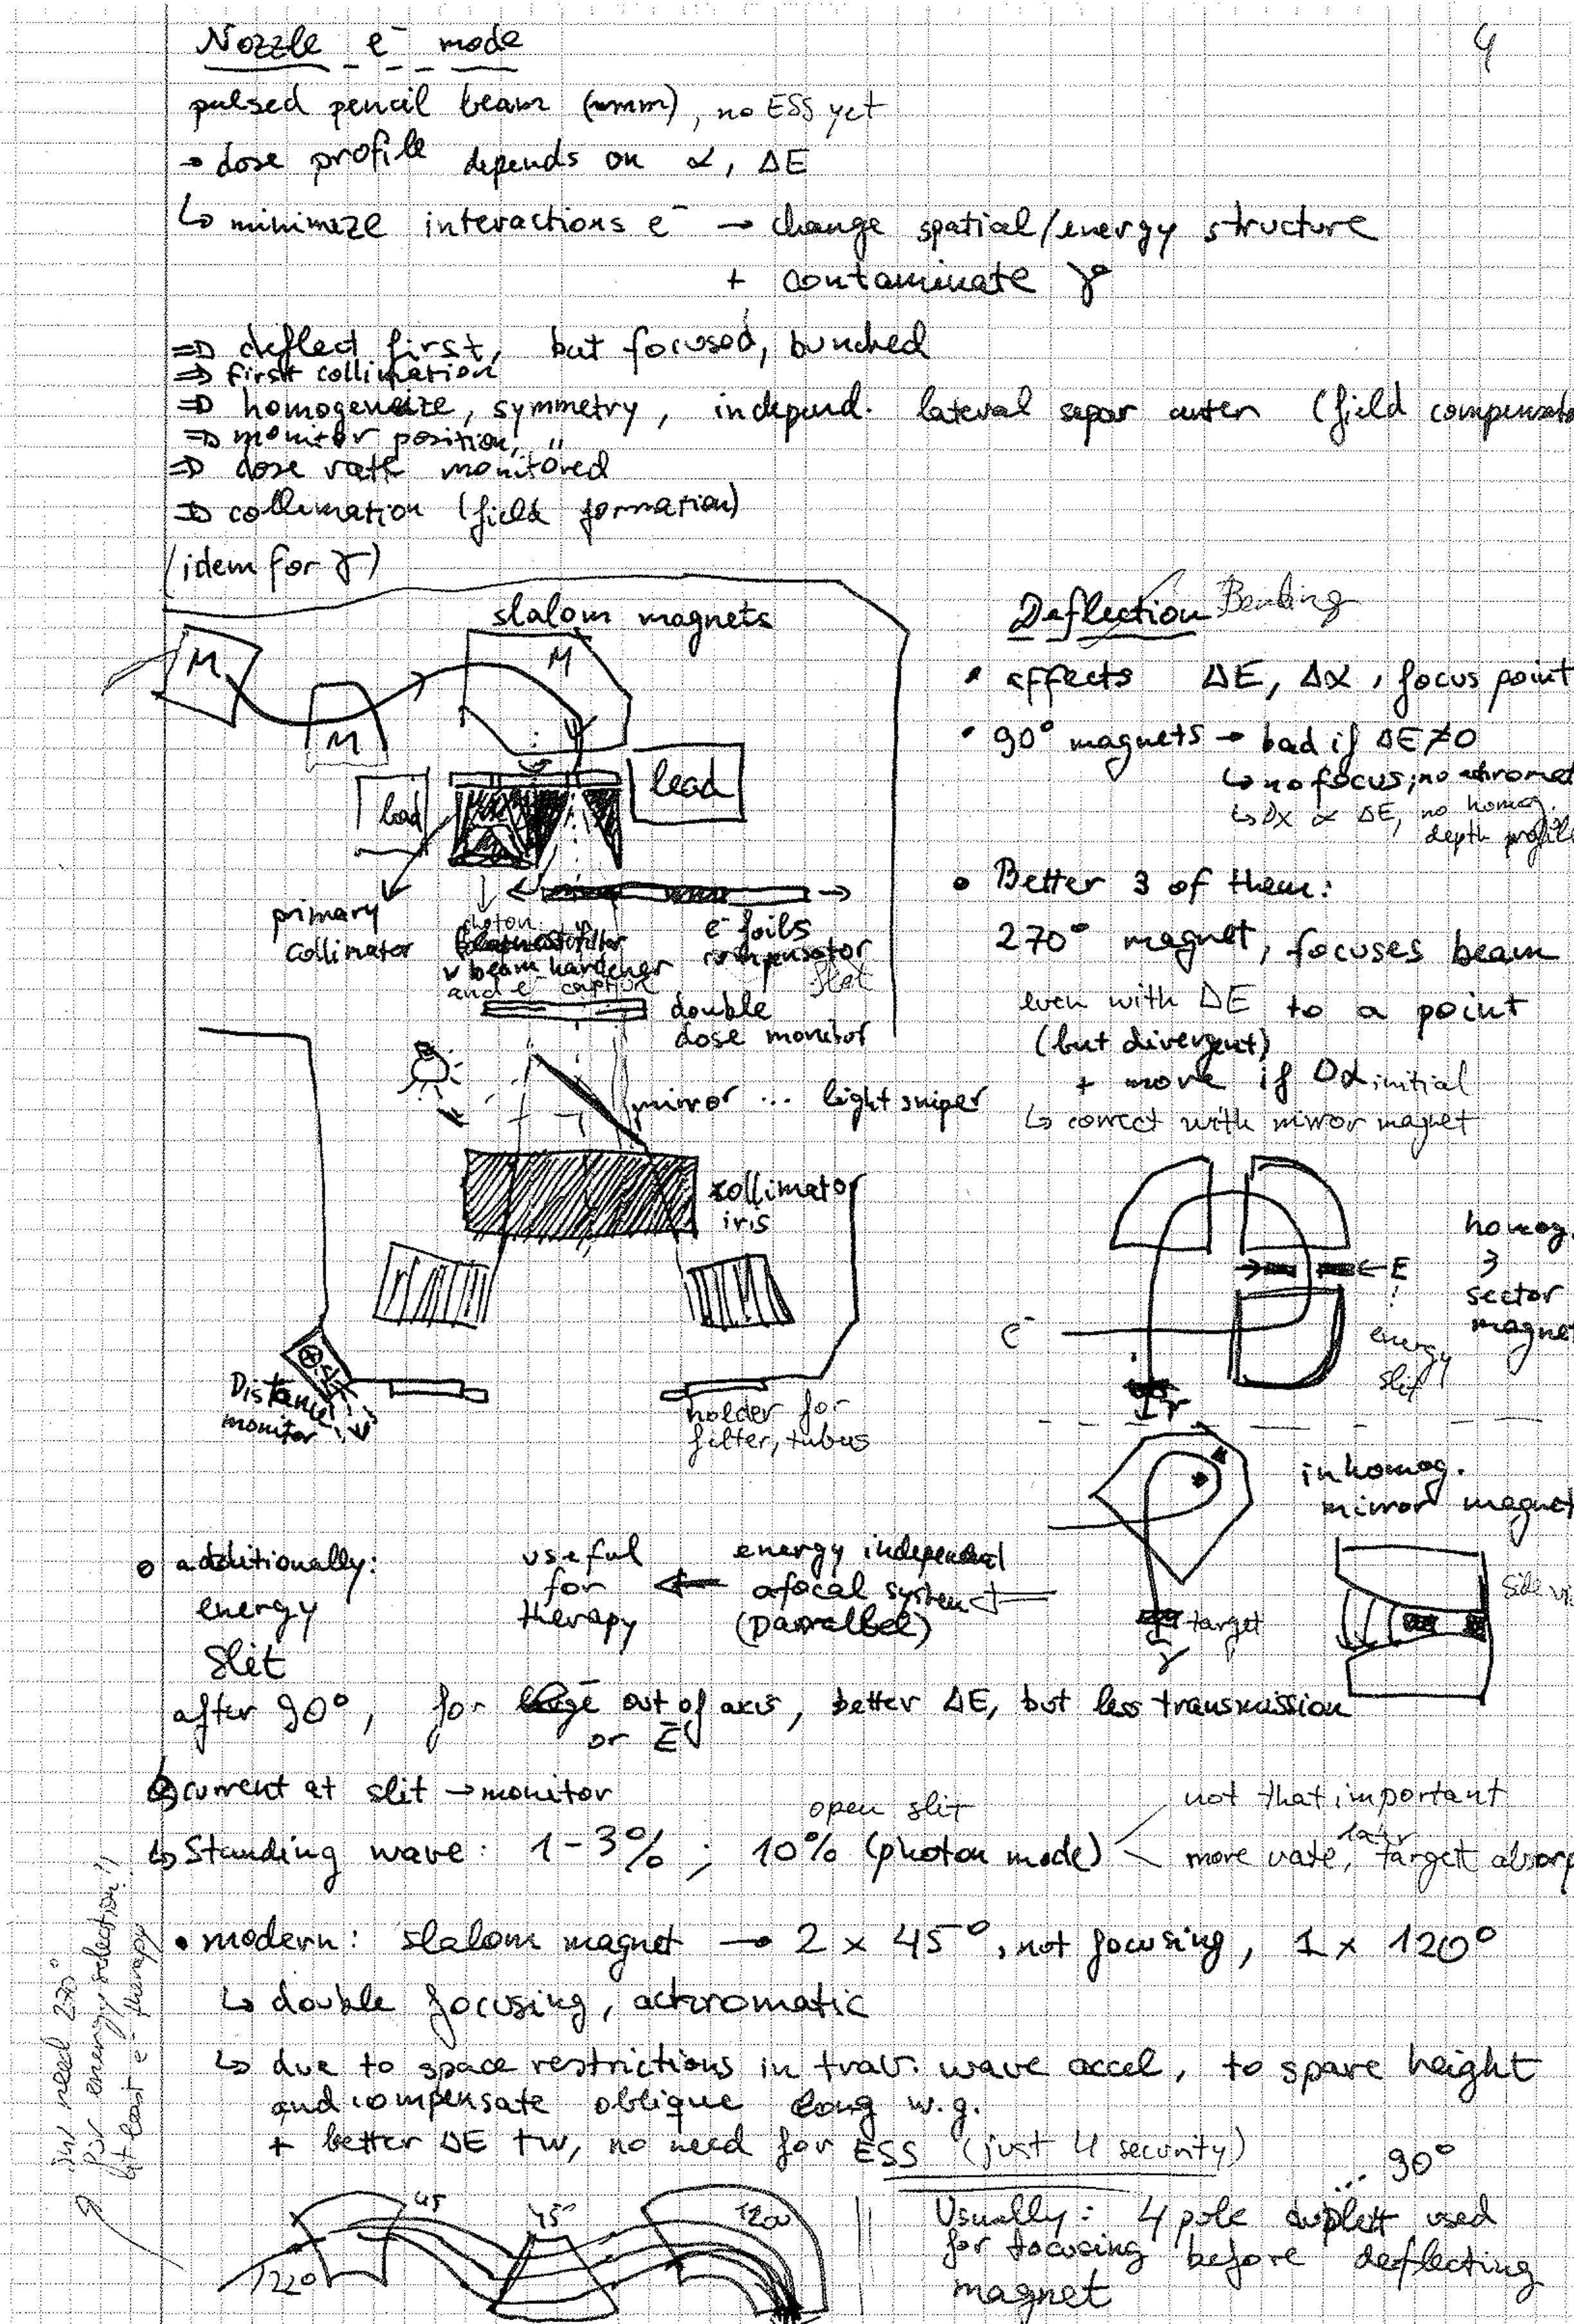 Nozzle e⁻ mode
4
pulsed pencil beam (~mm), no ESS yet
→ dose profile depends on α, ΔE
↳ minimize interactions e⁻ → change spatial/energy structure
+ contaminate γ
⇒ deflect first, but focused, bunched
⇒ first collimation
⇒ homogeneize, symmetry, independ. lateral
(field compensato
⇒ monitor position, "
⇒ dose rate monitored
⇒ collimation (field formation)
(idem for γ)
slalom magnets
M
M
M
lead
lead
primary
collimator
photon
beam hardener
and e⁻
e⁻ foils
compensator
flat
double
dose monitor
mirror ... light sniper
collimator
iris
Distance
monitor
holder for
filter, tubus
Deflection Bending
• affects ΔE, Δα, focus point
• 90° magnets → bad if ΔE≠0
↳ no focus; no achromat
↳ Dx ∝ ΔE, no homog.
depth profile
• Better 3 of them:
270° magnet, focuses beam
even with ΔE to a point
(but divergent)
+ move if Dα initial
↳ correct with mirror magnet
homog.
3
sector
magnet
E
energy
slit
e⁻
γ
inhomog.
mirror magnet
side vi
target
γ
• additionally:
energy
slit
useful
for
therapy
←
energy independent
afocal system
(parallel)
after 90°, for out of axis, better ΔE, but less transmission
or E
↳ current at slit → monitor
↳ Standing wave: 1-3% ; 10% (photon mode)
open slit
not that important
more rate, target absorp
later
• modern: slalom magnet → 2 x 45°, not focusing, 1 x 120°
↳ double focusing, achromatic
↳ due to space restrictions in trav. wave accel, to spare height
and compensate oblique long w.g.
+ better ΔE tw, no need for ESS (just 4 security)
need 270°
for energy selection!!
at least e⁻ therapy
45
45°
120°
... 90°
Usually: 4 pole duplett used
for focusing before deflecting
magnet